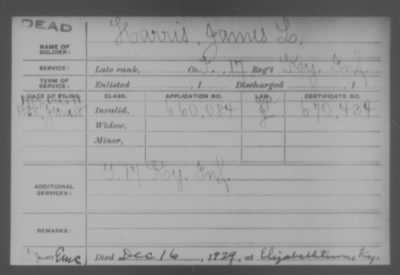 DEAD
Harris, James L.
NAME OF SOLDIER:
SERVICE: Late rank, Co. 17 Reg't Ky. Inf.
TERM OF SERVICE: Enlisted , 1 Discharged , 1
DATE OF FILING. CLASS. APPLICATION NO. LAW. CERTIFICATE NO.
Invalid, 660,024 670,424
Widow,
Minor,
ADDITIONAL SERVICES: 17 Ky. Inf.
REMARKS:
Died Dec 16, 1929, at Elizabethtown, Ky.